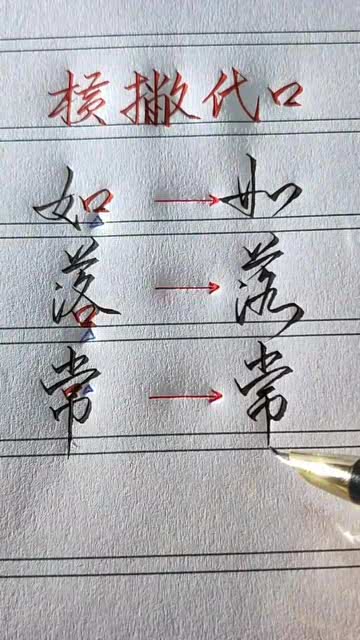 横撇代口
如→如
落→落
常→常